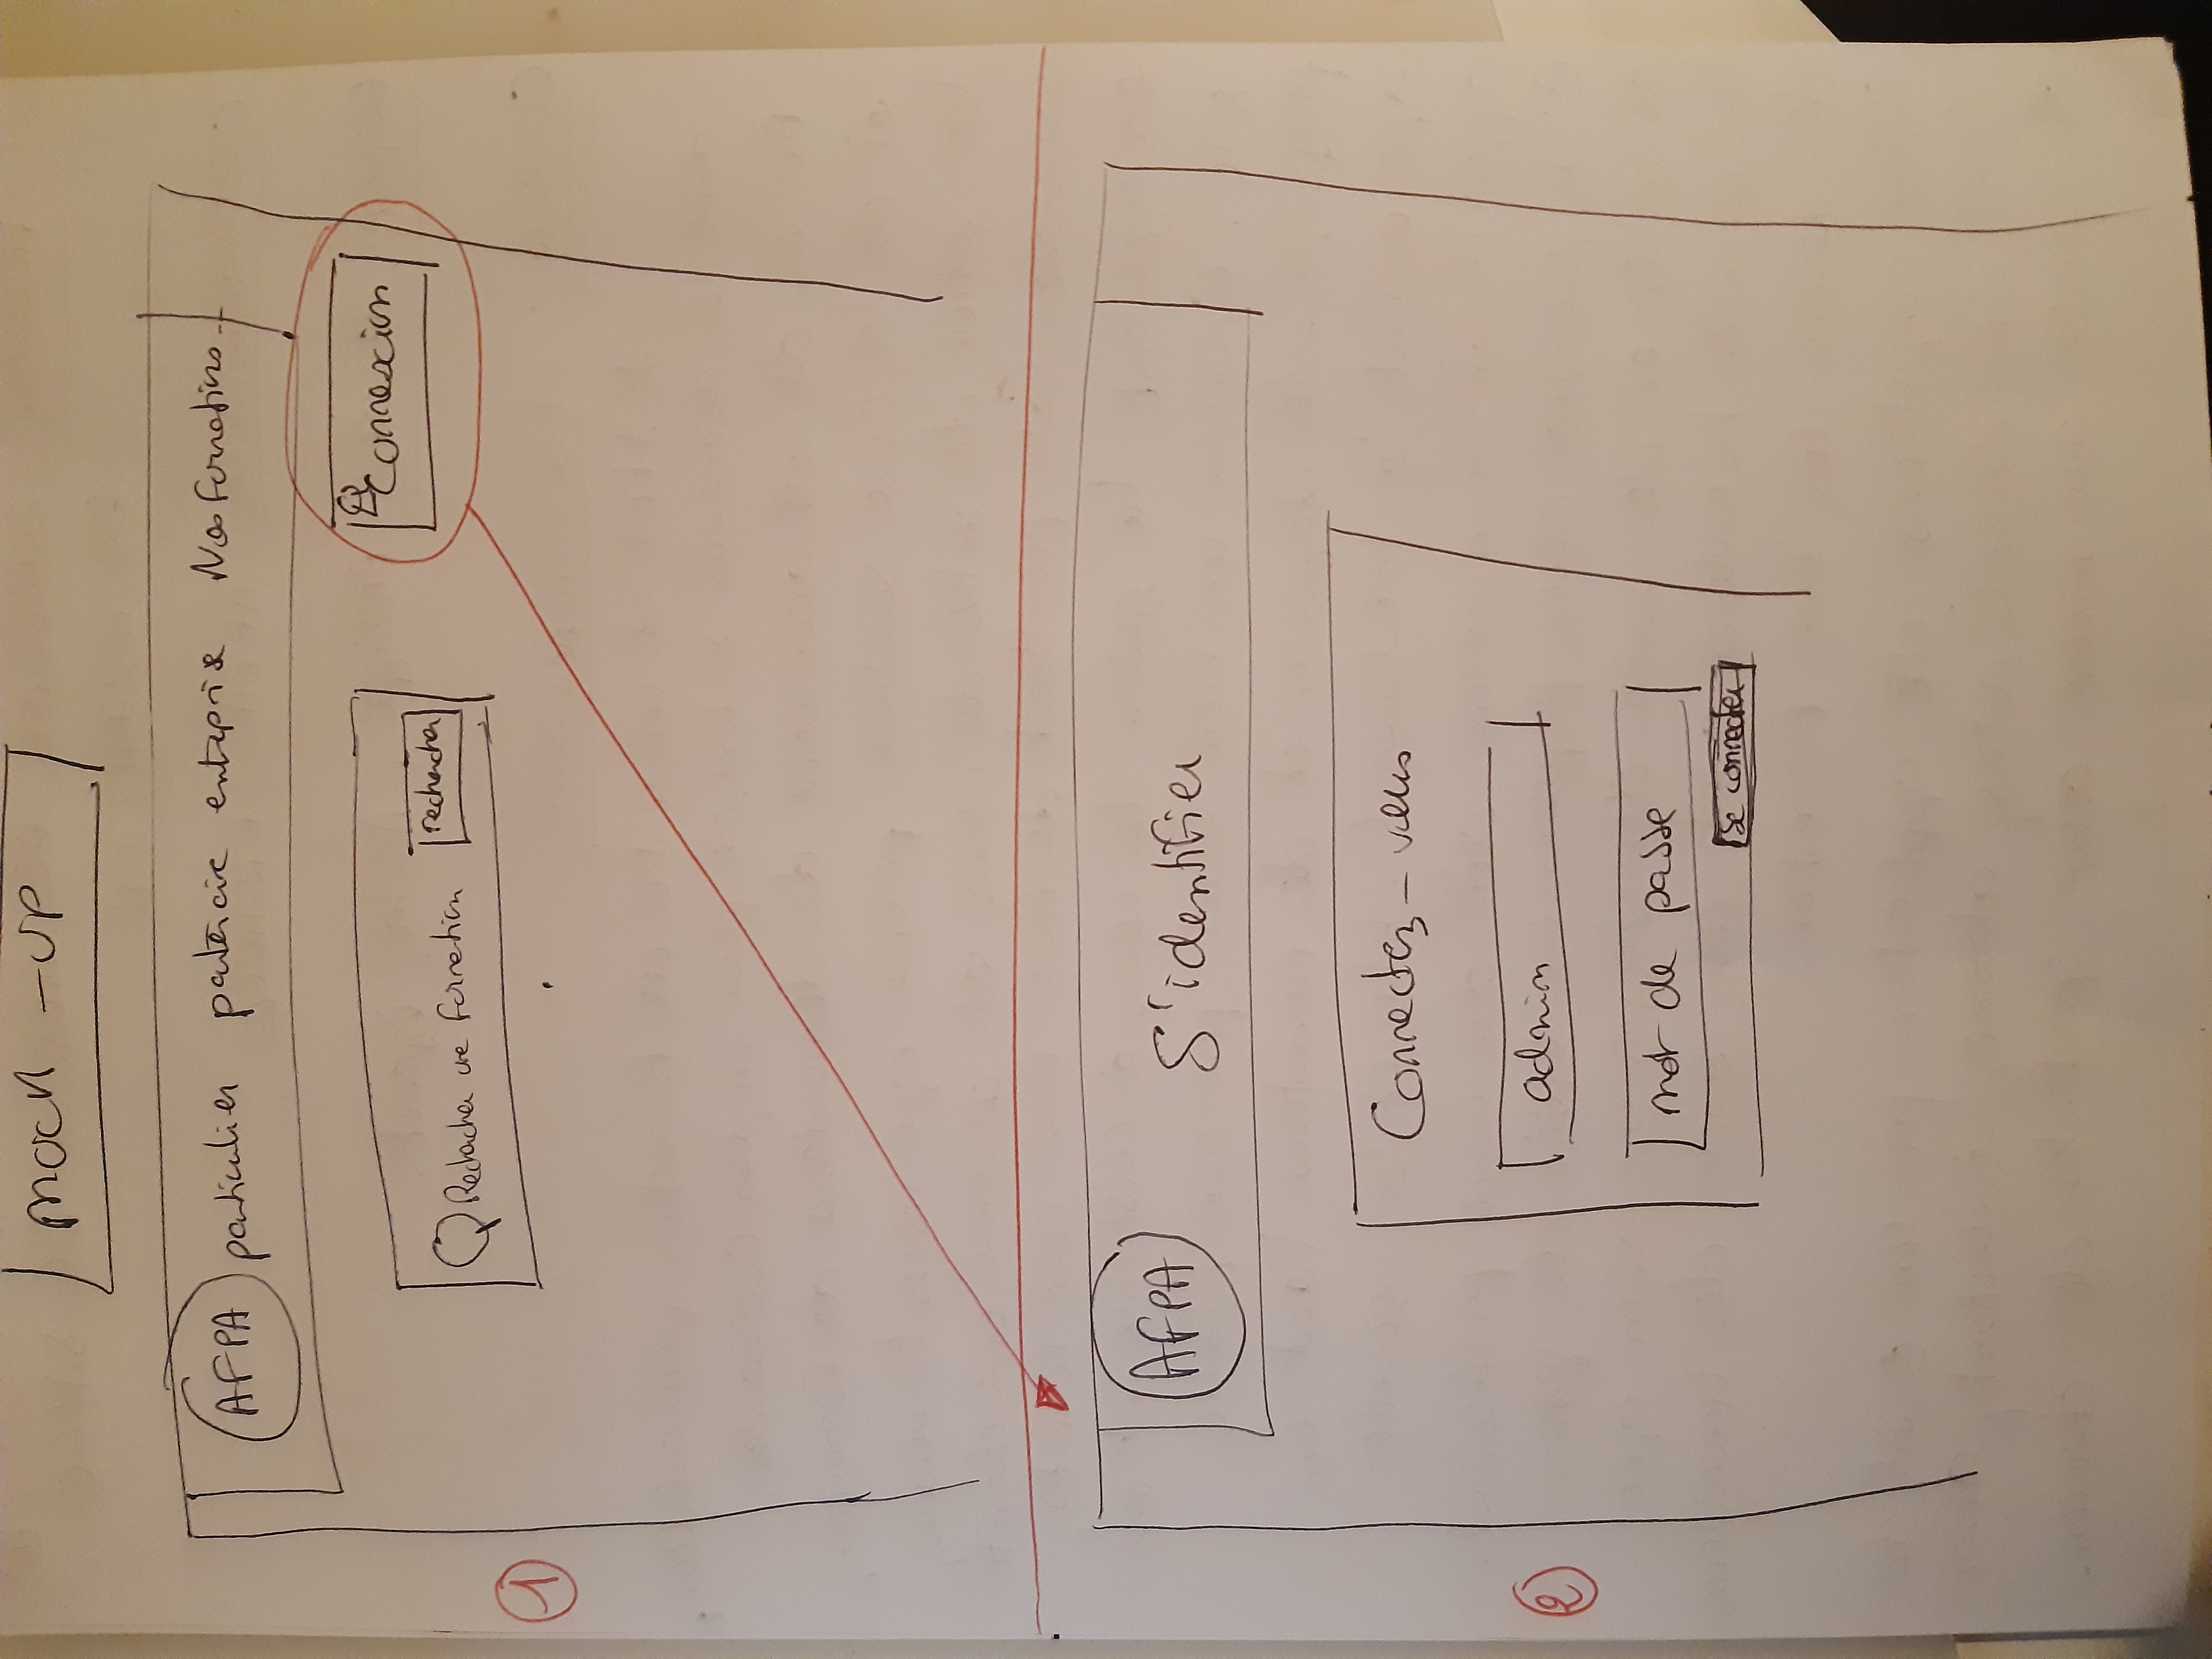 mock-up
AFPA particulier partenaire entreprise Nos formations
Connexion
Rechercher une formation rechercher
1
AFPA S'identifier
Connectez-vous
admin
2
mot de passe
se connecter